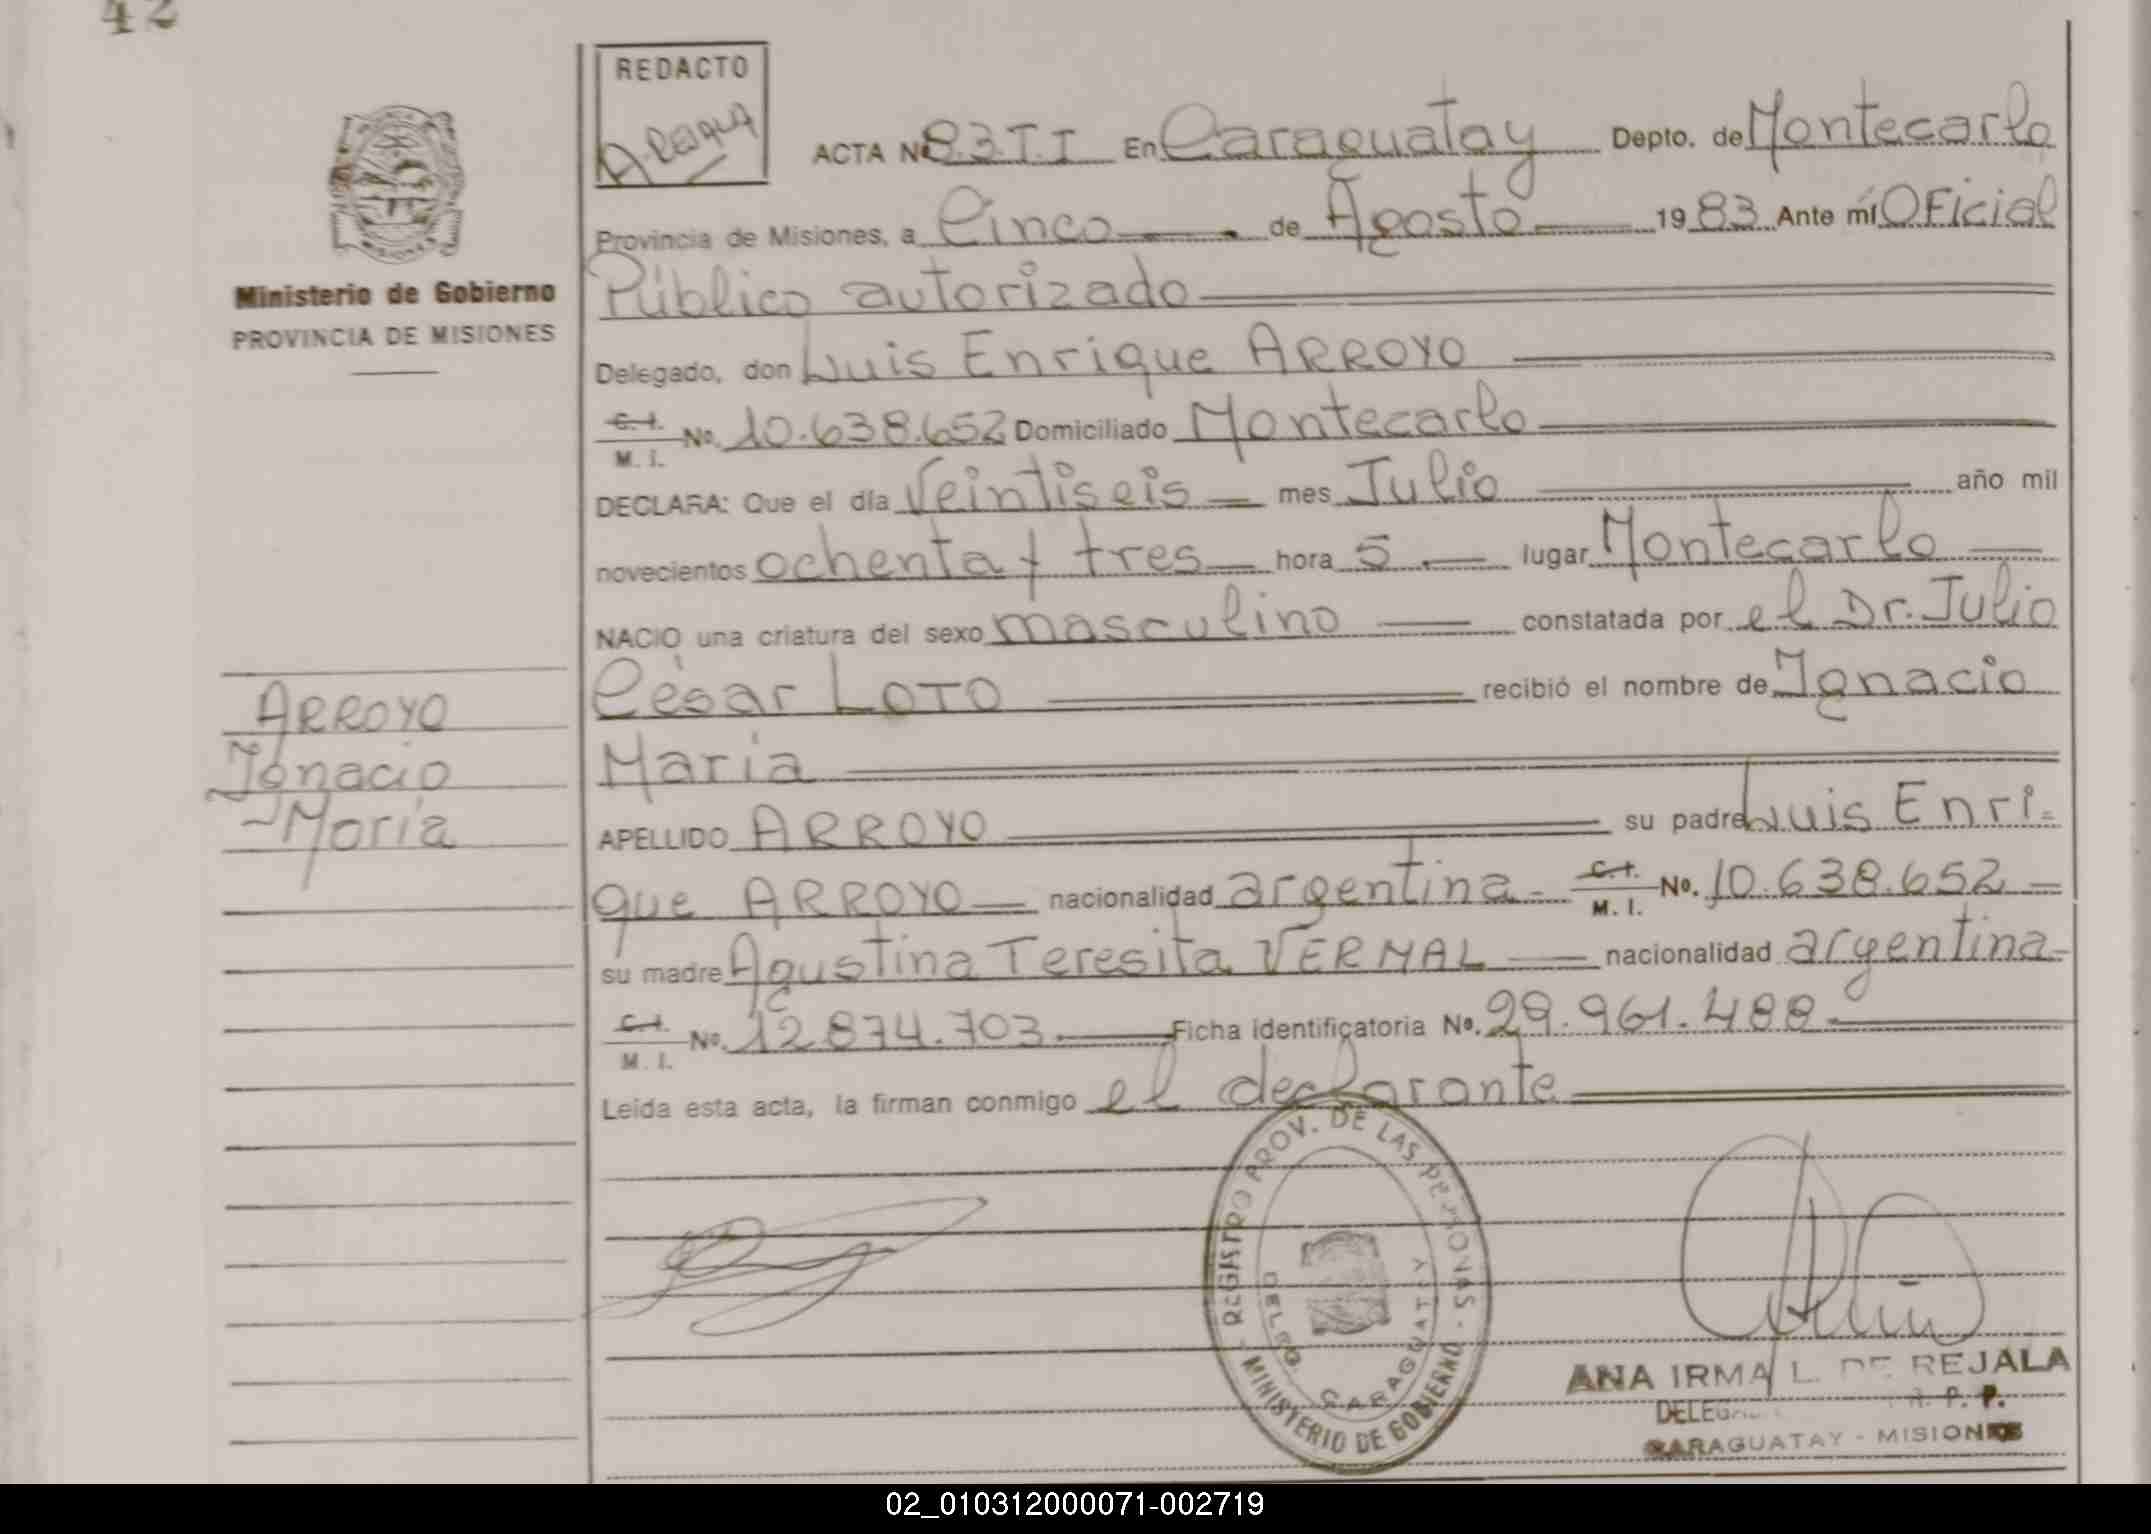 42
REDACTO
ACTA Nº 83.T.I En Caraguatay Depto. de Montecarlo
Provincia de Misiones, a Cinco de Agosto 1983 Ante mí Oficial
Público autorizado
Delegado, don Luis Enrique ARROYO
C.I. M. I. No. 10.638.652 Domiciliado Montecarlo
DECLARA: Que el día Veintiseis mes Julio año mil
novecientos ochenta y tres hora 5 lugar Montecarlo
NACIO una criatura del sexo masculino constatada por el Dr. Julio
César LOTO recibió el nombre de Ignacio
María
APELLIDO ARROYO su padre Luis Enri-
que ARROYO nacionalidad argentina C.I. M. I. No. 10.638.652
su madre Agustina Teresita VERNAL nacionalidad argentina
C.I. M. I. No. 12.874.703 Ficha identificatoria No. 29.961.488
Leída esta acta, la firman conmigo el declarante
Ministerio de Gobierno
PROVINCIA DE MISIONES
ARROYO
Ignacio
María
REGISTRO PROV. DE LAS PERSONAS
MINISTERIO DE GOBIERNO
DELEG. CARAGUATAY
ANA IRMA L. DE REJALA
CARAGUATAY - MISIONES
02_010312000071-002719